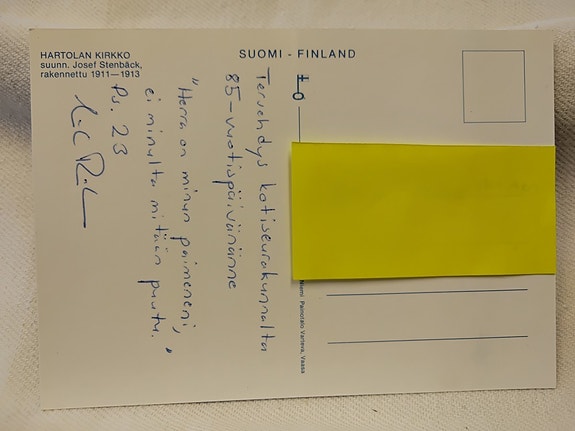 HARTOLAN KIRKKO
suunn. Josef Stenbäck,
rakennettu 1911—1913
SUOMI - FINLAND
Tervehdys kotiseurakunnalta
85-vuotispäivänänne
"Herra on minun paimeneni,
ei minulta mitään puutu."
Ps. 23
Niemi Painotalo Varteva, Vaasa